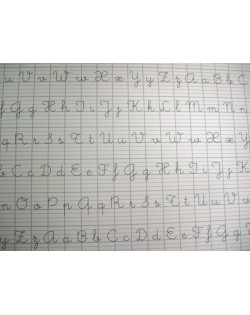 u V v W w X x Y y Z z A a B b C
f G g H h I i J j K k L l M m N n
q R r S s T t U u V v W w X x Y
b C c D d E e F f G g H h I i J j K
n O o P p Q q R r S s T t U u V v
y Z z A a B b C c D d E e F f G g